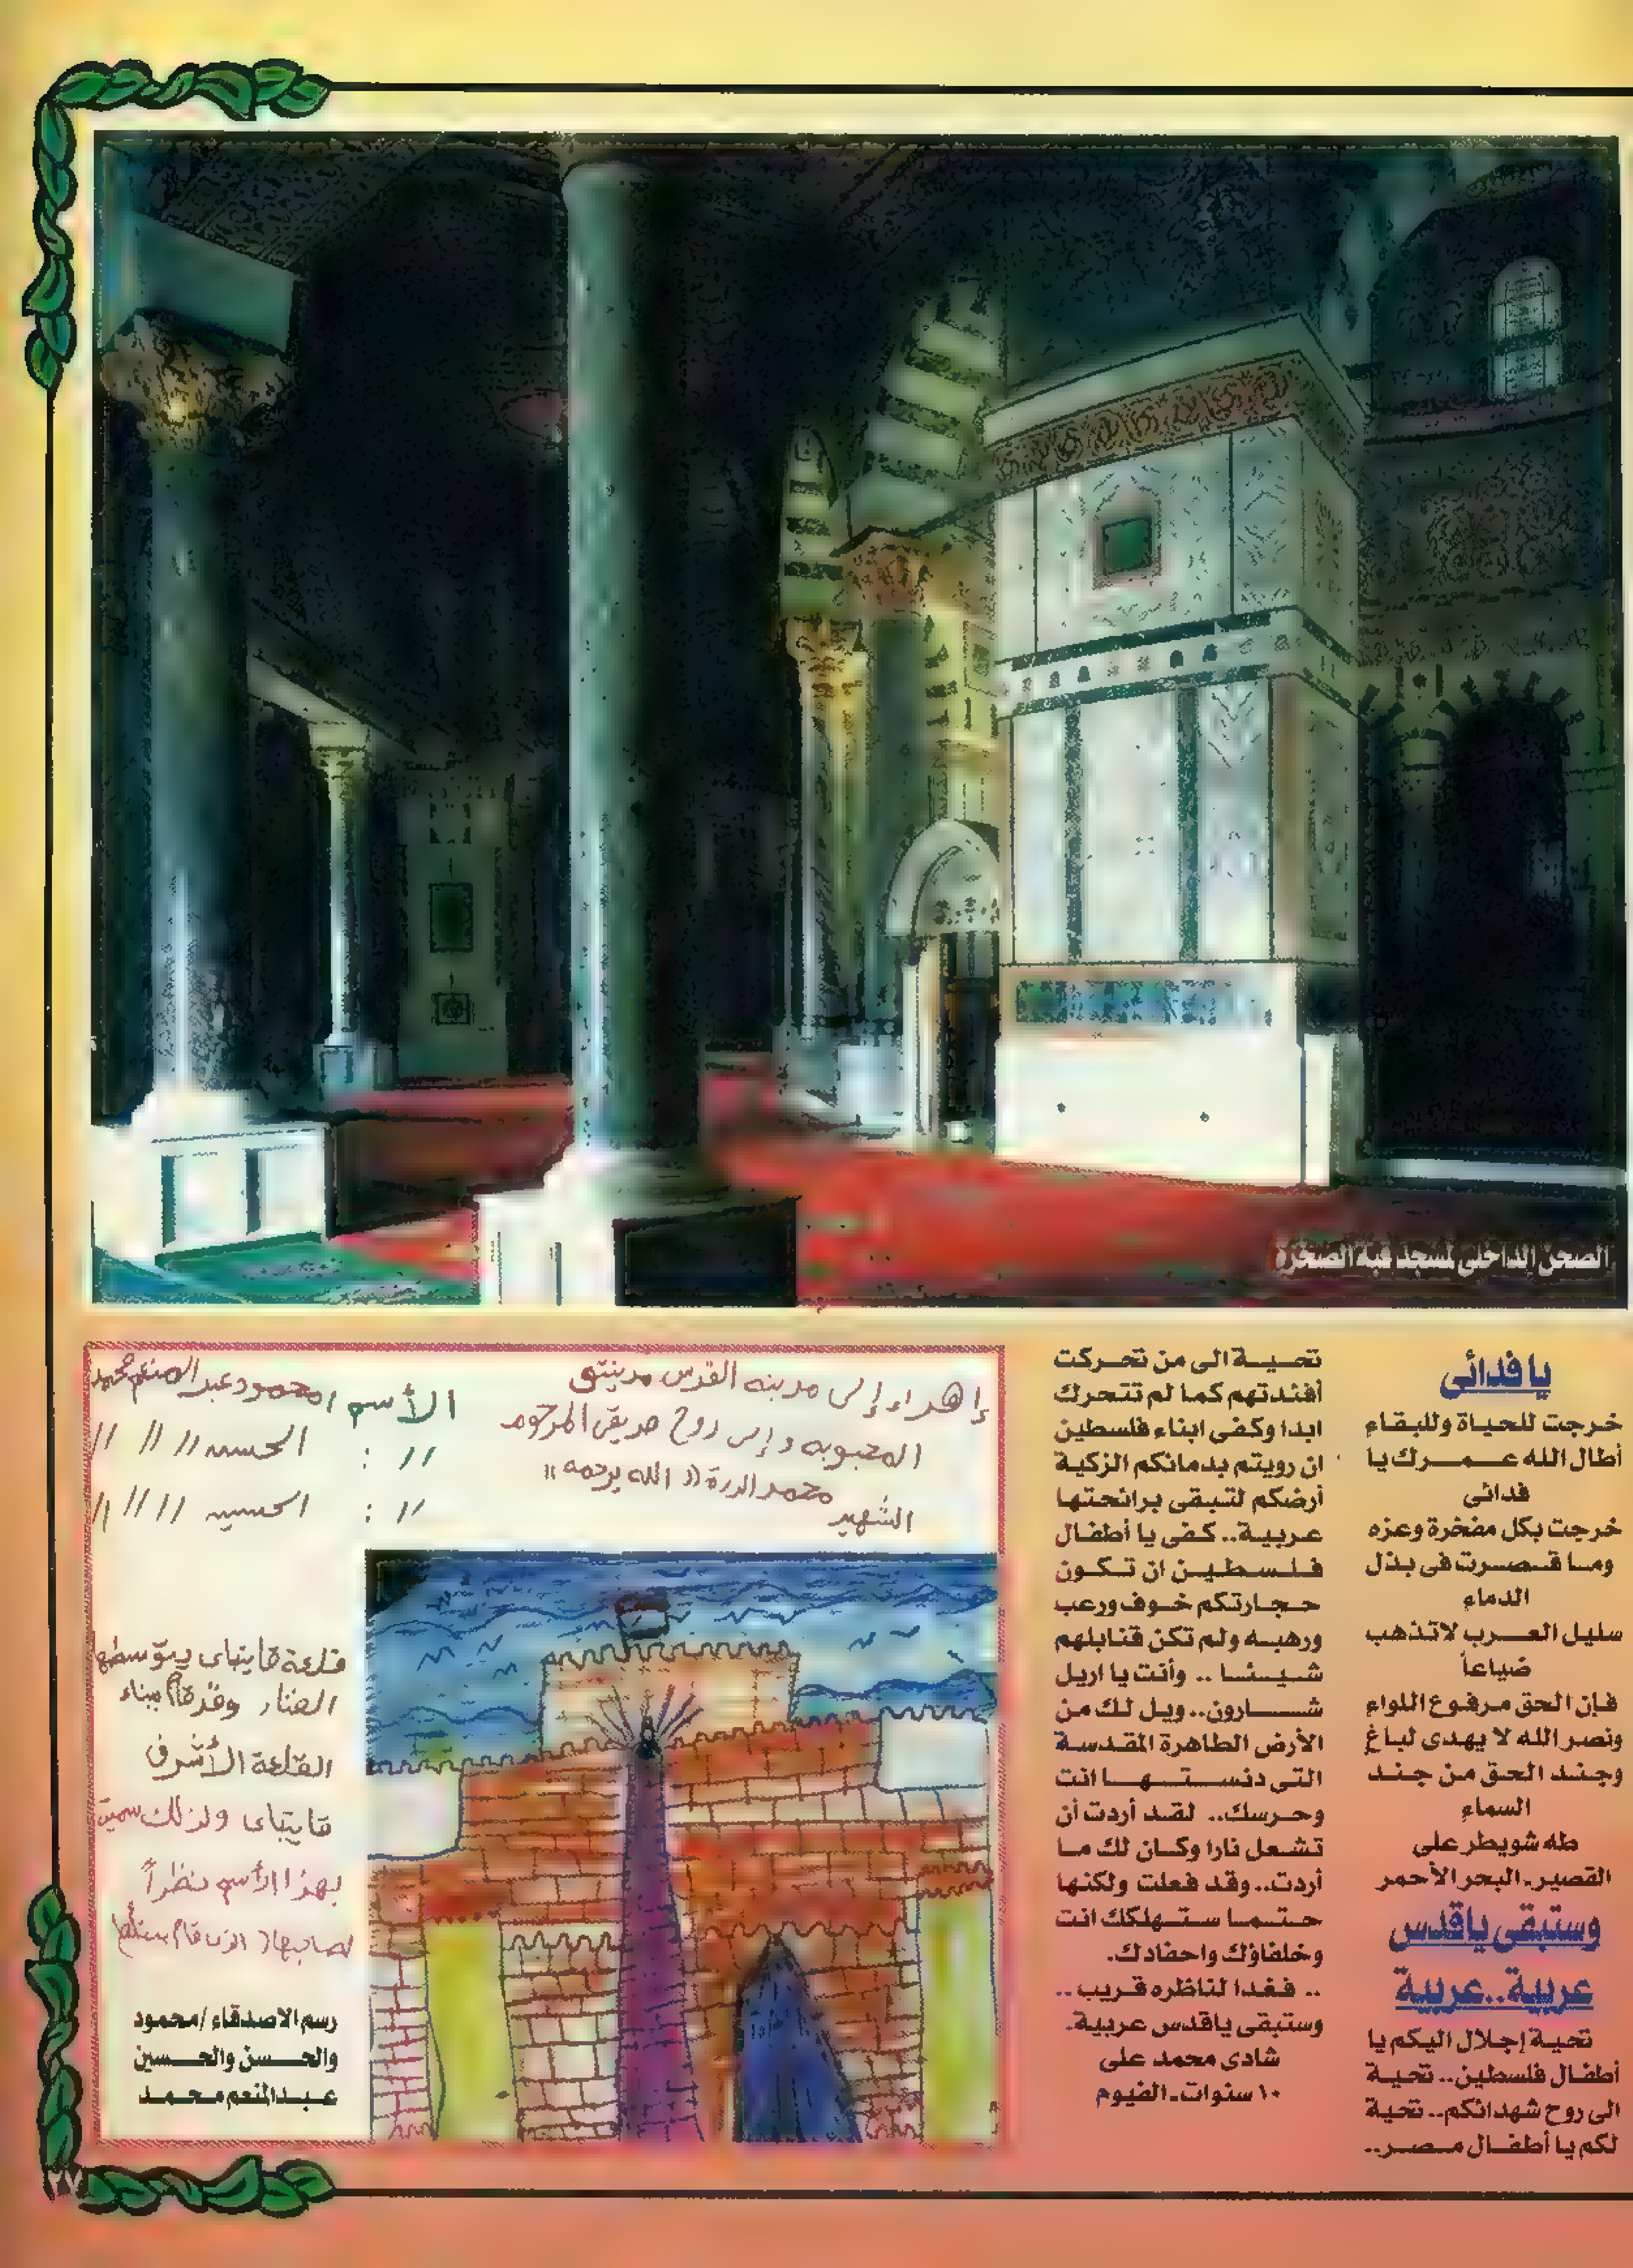 الصحن الداخلى لمسجد قبة الصخرة
يا فدائى
خرجت للحياة وللبقاء
أطال الله عمرك يا
فدائى
خرجت بكل مفخرة وعزه
وما قصرت فى بذل
الدماء
سليل العرب لاتذهب
ضياعاً
فإن الحق مرفوع اللواء
ونصر الله لا يهدى لباغ
وجند الحق من جند
السماء
طه شويطر على
القصير. البحر الأحمر
وستبقى ياقدس
عربية..عربية
تحية إجلال اليكم يا
أطفال فلسطين.. تحية
الى روح شهدائكم.. تحية
لكم يا أطفال مصر..
تحية الى من تحركت
أفئدتهم كما لم تتحرك
ابدا وكفى ابناء فلسطين
ان رويتم بدمائكم الزكية
أرضكم لتبقى برائحتها
عربية.. كفى يا أطفال
فلسطين ان تكون
حجارتكم خوف ورعب
ورهبه ولم تكن قنابلهم
شيئا .. وأنت يا اريل
شارون.. ويل لك من
الأرض الطاهرة المقدسة
التى دنستها انت
وحرسك.. لقد أردت أن
تشعل نارا وكان لك ما
أردت.. وقد فعلت ولكنها
حتما ستهلكك انت
وخلفاؤك واحفادك.
.. فغدا لناظره قريب ..
وستبقى ياقدس عربية.
شادى محمد على
١٠ سنوات. الفيوم
إهداء إلى مدينه القدس مدينتى
المحبوبه وإلى روح صديقى المرحوم
الشهيد محمد الدرة (( الله يرحمه ))
الأسم / محمود عبد المنعم محمد
// : الحسن // // //
// : الحسين // // //
قلعة قايتباى يتوسطها
الفنار وقد قام ببناء
القلعة الأشرف
قايتباى ولذلك سميت
بهذا الأسم نظراً
لصاحبها الذى قام ببنائها
رسم الاصدقاء /محمود
والحسن والحسين
عبدالمنعم محمد